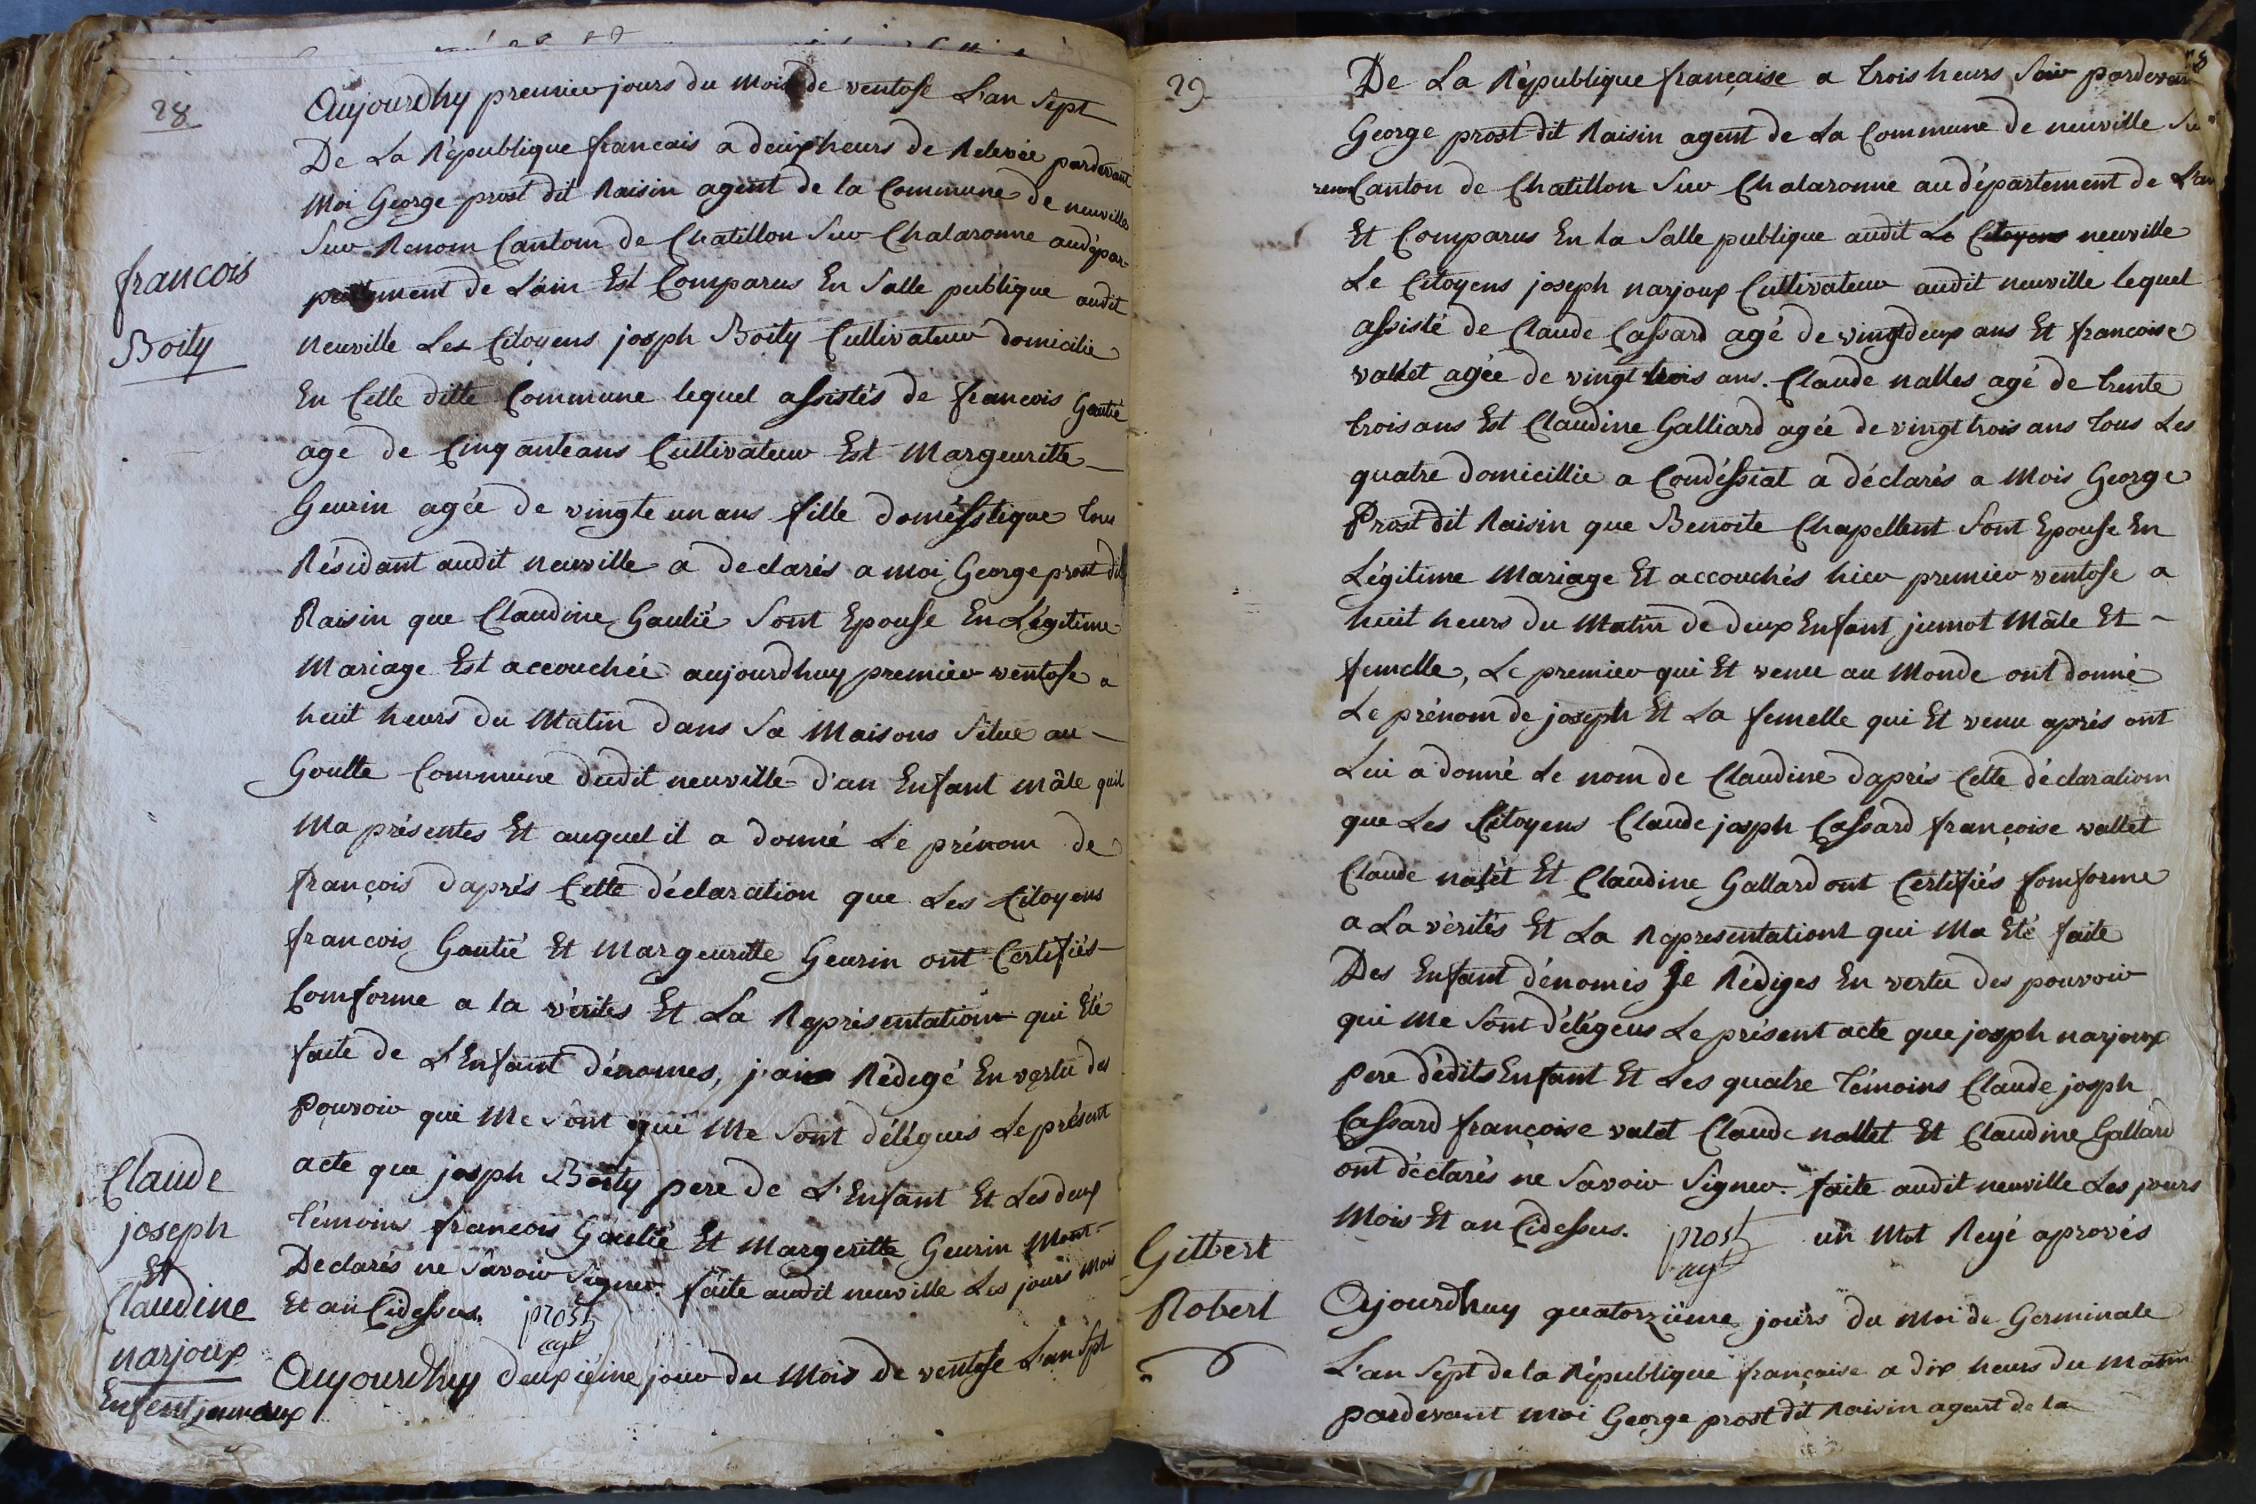 28
Aujourdhy premier jours du mois de ventose L'an Sept
De La République francais a deux heurs de Relevée pardevant
Moi George prost dit Raisin agent de la Commune de neuville
Sur Renom Cantom de Chatillon Sur Chalaronne audépar-
ment de L'ain Est Comparus En Salle publique audit
francois
Boity
neuville Les Citoyens josph Boity Cultivateur domicilie
En Cette ditte Commune lequel assistés de francois Gautié
age de Cinqanteans Cultivateur Est Margeuritte
Geurin agée de vingte unans fille doméstique tous
Résidant audit neuville a declarés a moi George prost dit
Raisin que Claudine Gautié Sont Epouse En Légitime
Mariage Est accouchée aujourdhuy premier ventose a
huit heurs du Matin dans Sa Maisons Situe au
Goutte Commune dudit neuville d'un Enfant mâle quil
Ma présentes Et auquel il a donné Le prénom de
françois daprés Cette déclaration que Les Citoyens
françois Gautié Et Margeuritte Geurin ont Certifiés
Comforme a la vérites Et La Représentation qui Été
faite de L'Enfant dénomes, j'ai Rédegé En vertu des
Pouvoir qui Me Sont qui Me Sont délégues Le présent
acte que josph Boity pere de L'Enfant Et Les deux
témoins francois Gautié Et Margeritte Geurin Mont
Declarés ne Savoir Signer. faite audit neuville Les jours Mois
Et an Cidessus. prost
agt
Claude
joseph
Et
Claudine
narjoux
Enfent jumaux
Aujourdhuy deuxiéme jour du Mois de ventose L'an Spt
29
De La République française a trois heurs Soir pardevant
George prost dit Raisin agent de La Commune de neuville Sur
renom Canton de Chatillon Sur Chalaronne audépartement de L'ain
Et Comparus En la Salle publique audit Le Citoyens neuville
Le Citoyens joseph narjoux Cultivateur audit neuville lequel
assisté de Claude Cassard agé de vingtdeux ans Et francoise
vallet agée de vingt trois ans. Claude nalles agé de trente
trois ans Est Claudine Galliard agée de vingt trois ans tous Les
quatre domicillie a Condéssiat a déclarés a Mois George
Prost dit Raisin que Benoite Chapellent Sont Epouse En
Légitime Mariage Et accouchés hier premier ventose a
huit heurs du Matin de deux Enfant jumot Mâle Et
femelle, Le premier qui Et venu au Monde ont donné
Le prénom de joseph Et La femelle qui Et venu aprés ont
Lui a donné Le nom de Claudine daprés Cette déclaratiom
que Les Citoyens Claude josph Cassard françoise vallet
Claude nalét Et Claudine Gallard ont Certifiés Comforme
a La vérités Et La Representationt qui Ma Eté faite
Des Enfant dénomis Je Rédiges En vertu des pouvoir
qui Me Sont délégeus Le présent acte que josph narjoux
Pere déditsEnfant Et Les quatre témoins Claude josph
Cassard françoise valet Claude nallet Et Claudine Gallard
ont déctarés ne Savoir Signer. faite audit neuville Les jours
Mois Et an Cidessus. prost un Mot Reyé aprovés
agt
Gilbert
Robert
Ajourdhuy quatorziéme jours du moi de Germinale
L'an Sept de la République française a dix heurs du Matin
pardevant Moi George prost dit Raisin agent de la